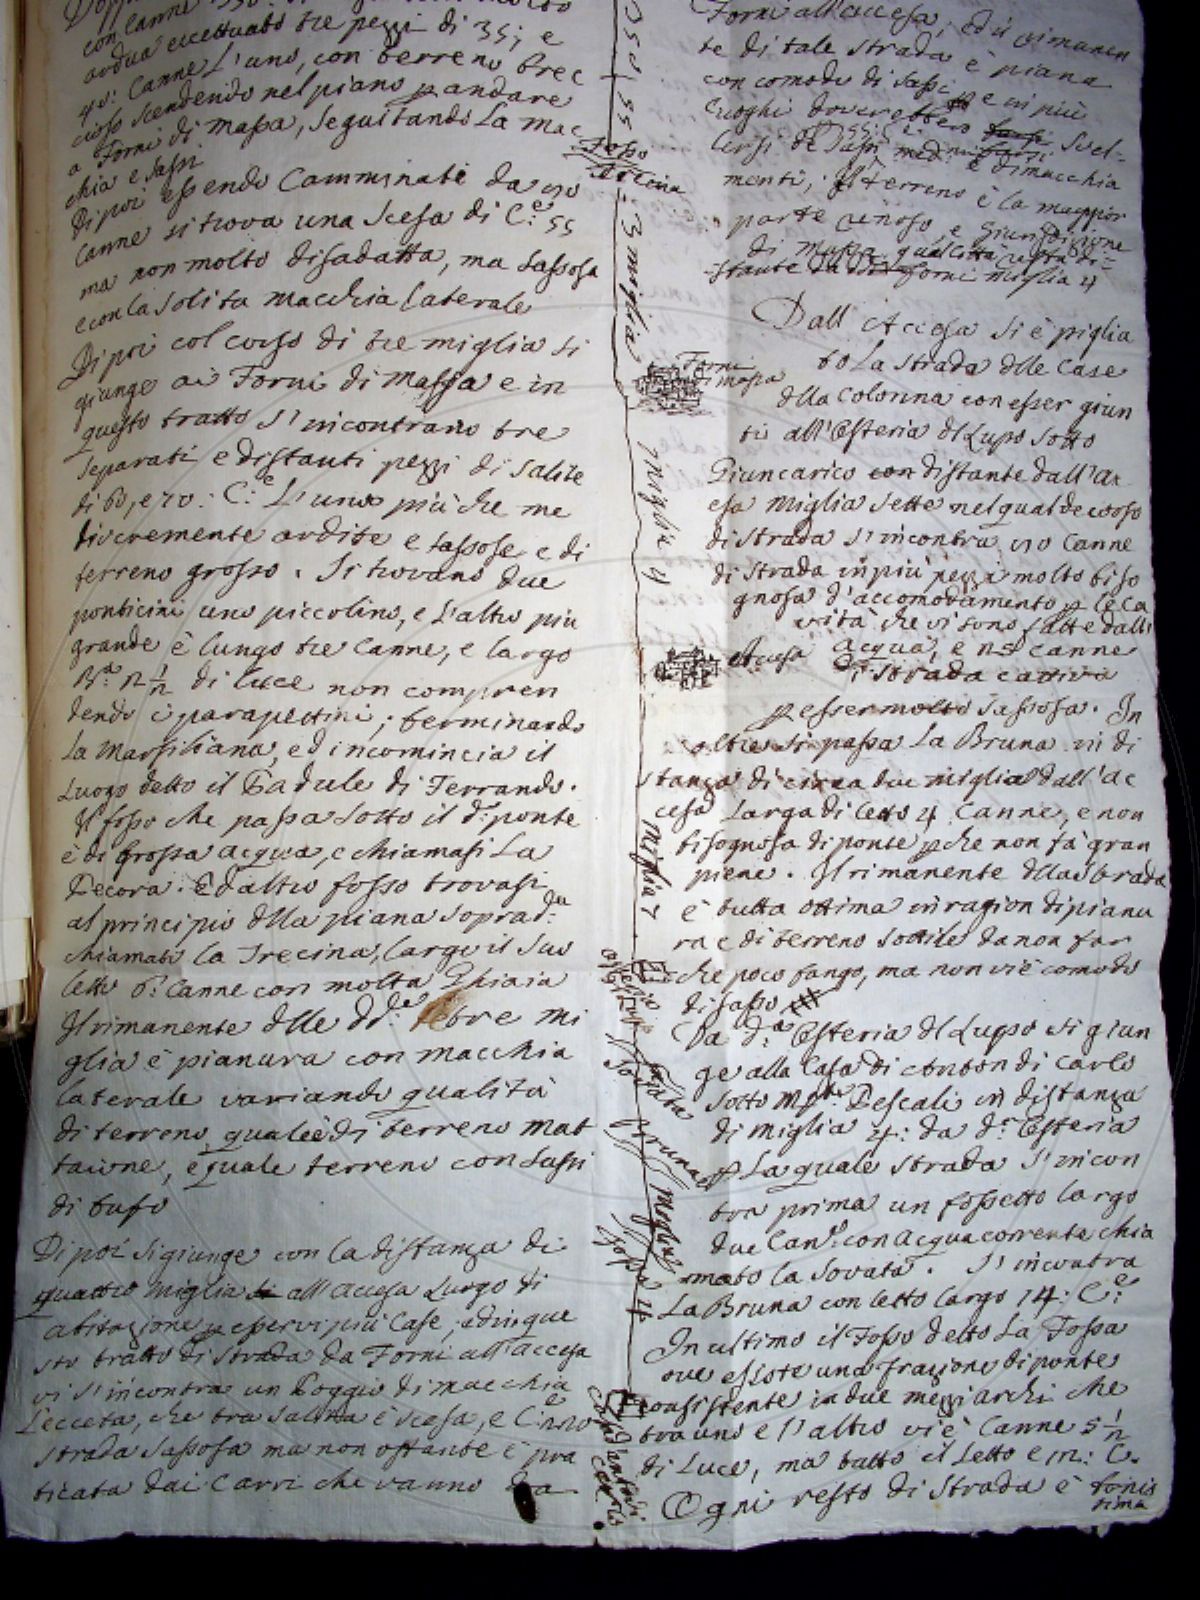 con Canne
ardua eccettuato tre pezzi di 35; e
40: Canne l'uno, con terreno brec
cioso scendendo nel piano p andare
a Forni di Massa, seguitando la mac
chia e sassi
Di poi essendo Camminate da 150
Canne si trova una scesa di C.e 55
ma non molto disadatta, ma sassosa
e con la solita macchia laterale
Di poi col corso di tre miglia si
giunge ai Forni di Massa e in
questo tratto s'incontrano tre
separati e distanti pezzi di salite
di 60, e 70: C.e l'uno più che me
diocremente ardite e sassose e di
terreno grosso. Si trovano due
ponticini uno piccolino, e l'altro più
grande è lungo tre Canne, e largo
B.a di luce non compren
dendo i parapettini; terminando
la Marsiliana, ed incomincia il
Luogo detto il Padule di Ferrando.
Il fosso che passa sotto il d.o ponte
è di grossa acqua, e chiamasi La
Pecora. Ed altro fosso trovasi
al principio dlla piana soprad.a
chiamato la Trecina, largo il suo
letto 6: Canne con molta Ghiaia
Il rimanente dlle dd.e tre mi
glia è pianura con macchia
laterale variando qualità
di terreno quale è di terreno mat
taione, e quale terreno con sassi
di tufo
Di poi si giunge con la distanza di
quattro miglia all'Accesa Luogo di
abitazione p esservi più Case, ed in que
sto tratto di strada da Forni all'Accesa
vi s'incontra un Poggio di macchia
Lecceta, che tra salita è scesa, e C.e
strada sassosa ma non ostante è pra
ticata dai Carri che vanno da
Fosso
Trecina
3 miglia
Forni
di Massa
Miglia 4
Accesa
Miglia 7
Osteria
del Lupo
Sovata
Bruna
Miglia 4
Fossa
Casa d'Anton di
Carlo
Forni all'Accesa, ed il rimanen
te di tale strada è piana
con comodo di sassi, e in più
luoghi doverebbero
scel-
cersi de sassi
e di macchia
menti; Il terreno è la maggior
parte e Giurisdizione
di Massa, qual Città resta di-
stante da Forni miglia 4
Dall' Accesa si è piglia
to la strada dlle Case
dlla Colonna con esser giun
ti all'Osteria dl Lupo sotto
Giuncarico distante dall'Ac
cesa Miglia sette nel qual decorso
di strada s'incontra 150 Canne
di strada in più pezzi molto biso
gnosa d'accomodamento p le ca
vità che vi sono fatte dall'
acqua, e 125 Canne
di strada cattiva
p esser molto sassosa. In
oltre si passa La Bruna in di
stanza di circa due miglia dall'Ac
cesa larga di letto 4 Canne, e non
bisognosa di ponte p che non fà gran
piene. Il rimanente dlla strada
è tutta ottima in ragion di pianu
ra e di terreno sottile da non far
che poco fango, ma non vi è comodo
di sasso
Da d.a Osteria dl Lupo si giun
ge alla Casa di Anton di Carlo
sotto M.te Pescali in distanza
di miglia 4: da d.a Osteria
p La quale strada s'incon
tra prima un fossetto largo
due Can.e con acqua corrente chia
mato la Sovata. S'incontra
La Bruna con letto largo 14: C.e
In ultimo il Fosso detto La Fossa
ove esiste una frazione di ponte
consistente in due mezzi archi che
tra uno e l'altro vi è Canne 5 1/2
di Luce, ma tutto il Letto e 12: C.
Ogni resto di strada è bonis
sima